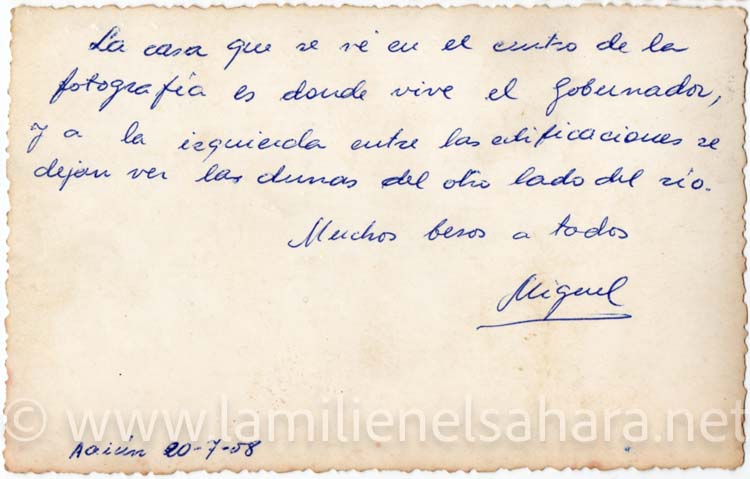 La casa que se vé en el centro de la
fotografía es donde vive el Gobernador,
y a la izquierda entre las edificaciones se
dejan ver las dunas del otro lado del río.
Muchos besos a todos
Miguel
© www.lamilienelsahara.net
Aaiún 20-7-58